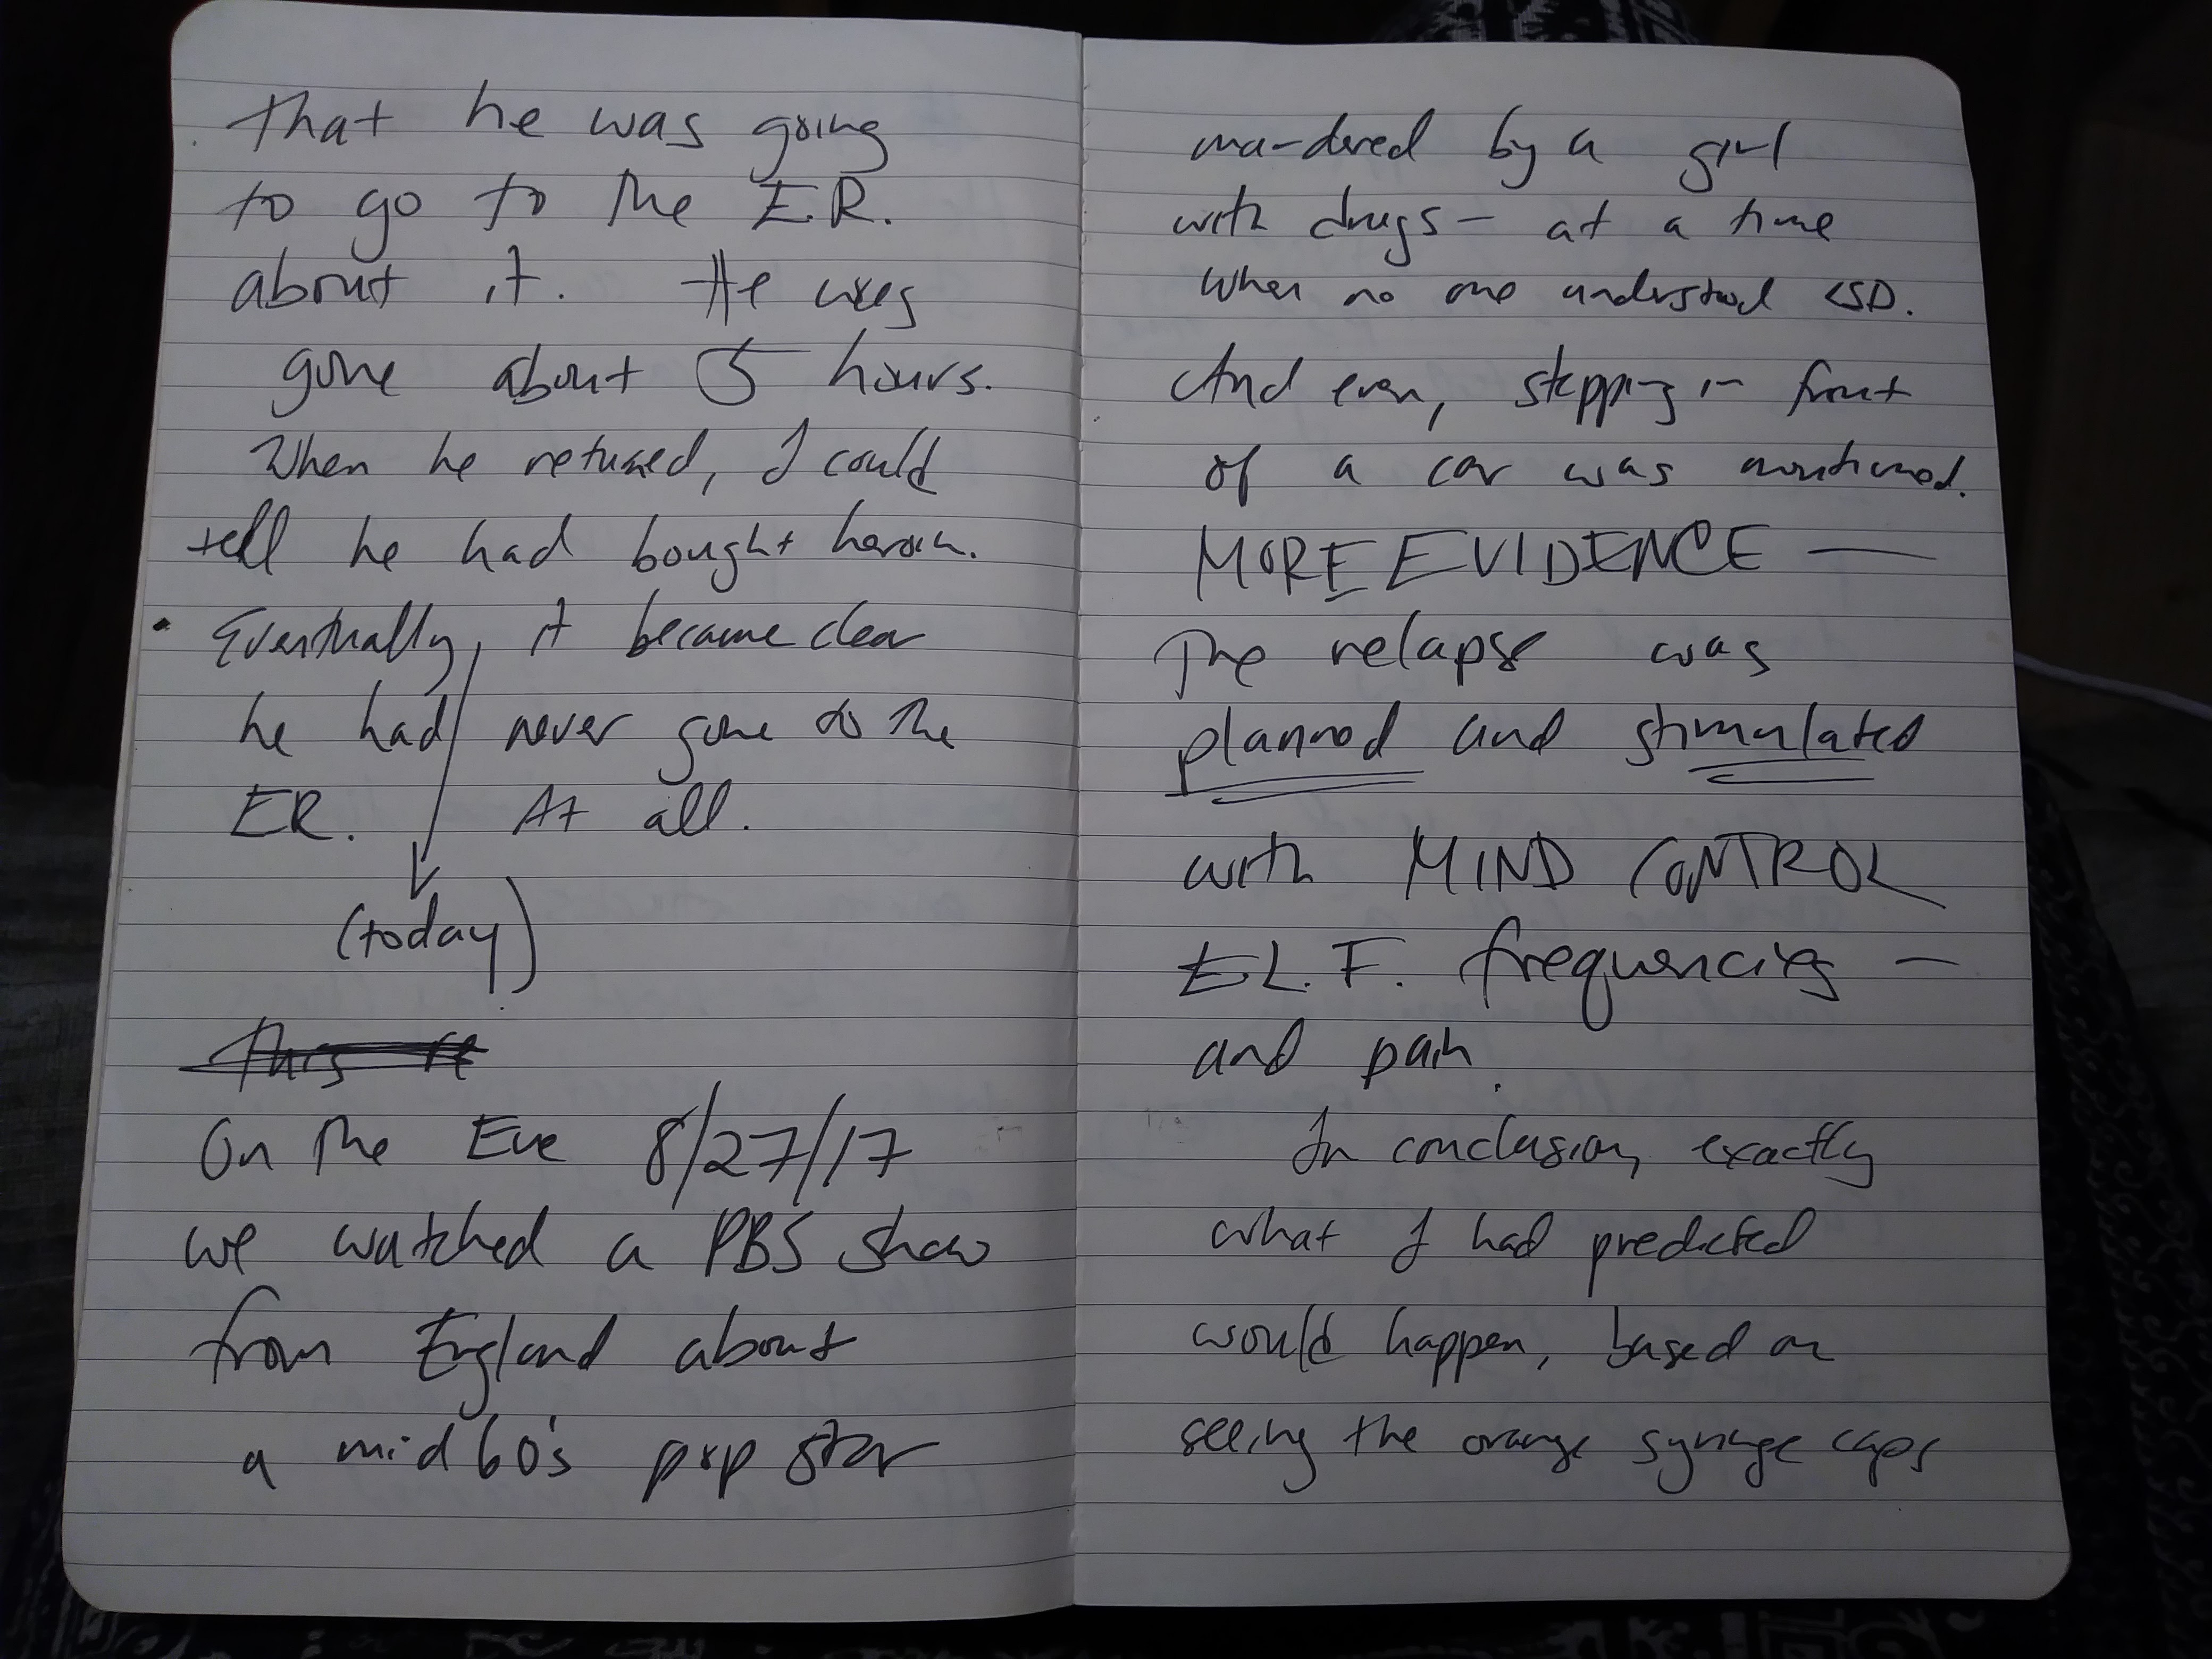 that he was going
to go to the E.R.
about it. He was
gone about 5 hours.
When he returned, I could
tell he had bought heroin.
• Eventually, it became clear
he had never gone to the
ER. At all.
(today)
This
On the Eve 8/27/17
we watched a PBS show
from England about
a mid 60's pop star
murdered by a girl
with drugs — at a time
when no one understood LSD.
And even, stepping in front
of a car was mentioned.
MORE EVIDENCE —
The relapse was
planned and stimulated
with MIND CONTROL
E.L.F. frequencies —
and pain.
In conclusion, exactly
what I had predicted
would happen, based on
seeing the orange syringe caps